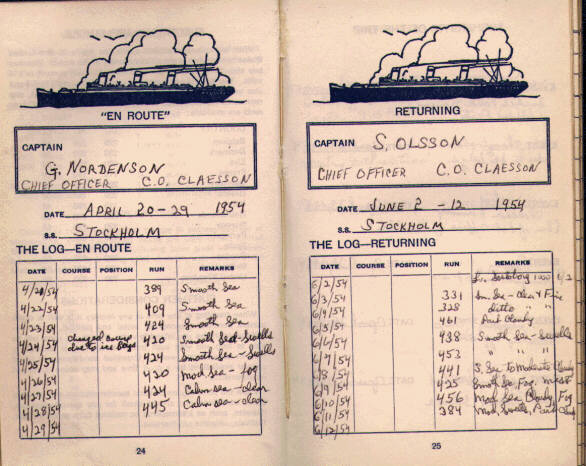 "EN ROUTE"
CAPTAIN
G. NORDENSON
CHIEF OFFICER C.O. CLAESSON
DATE APRIL 20-29 1954
S.S. STOCKHOLM
THE LOG—EN ROUTE
DATE COURSE POSITION RUN REMARKS
4/21/54 389 Smooth Sea
4/22/54 409 Smooth Sea
4/23/54 424 Smooth Sea
4/24/54 Changed course due to ice bergs 420 Smooth Sea - Swells
4/25/54 424 Smooth Sea - Swells
4/26/54 420 Mod Sea - fog
4/27/54 424 Calm sea - clear
4/28/54 445 Calm sea - clear
4/29/54
24
RETURNING
CAPTAIN S. OLSSON
CHIEF OFFICER C.O. CLAESSON
DATE JUNE 2 - 12 1954
S.S. STOCKHOLM
THE LOG—RETURNING
DATE COURSE POSITION RUN REMARKS
6/2/54 6/2
6/3/54 331 Sm. Sea - clear & Fine
6/4/54 328 ditto "
6/5/54 461 Part Cloudy
6/6/54 438 Smooth Sea - Swells
6/7/54 453 " " "
6/8/54 441 S. Sea to Moderate Cloudy
6/9/54 425 Smooth Sea, Fog, mist
6/10/54 456 Mod Sea Cloudy, Fog
6/11/54 384 Mod. Swells, Part Cloudy
6/12/54
25